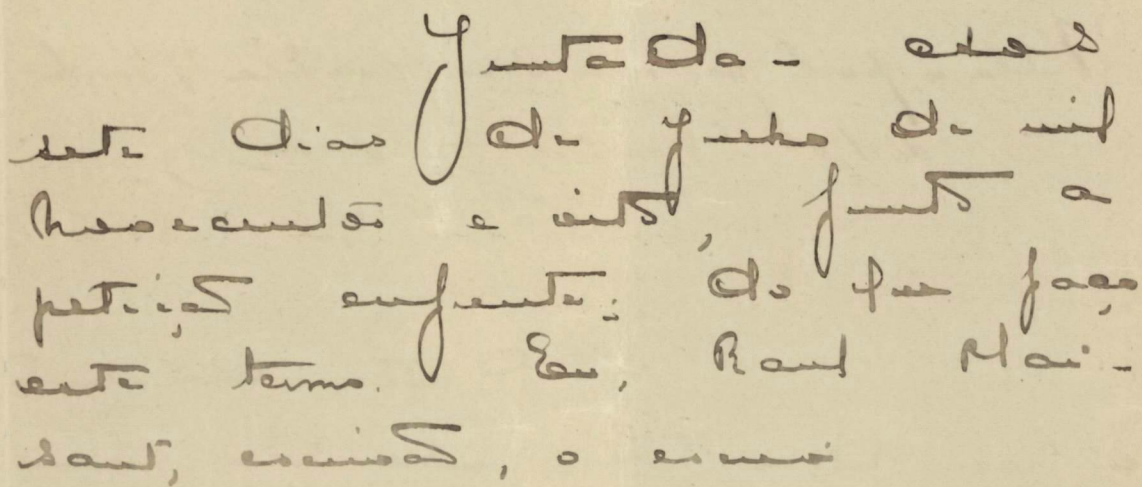 Juntada - Aos
sete dias de Julho de mil
novecentos e oito, junto a
petição enfrente; do que faço
este termo. Eu, Raul Plai-
sant, escrivão, o escrevi